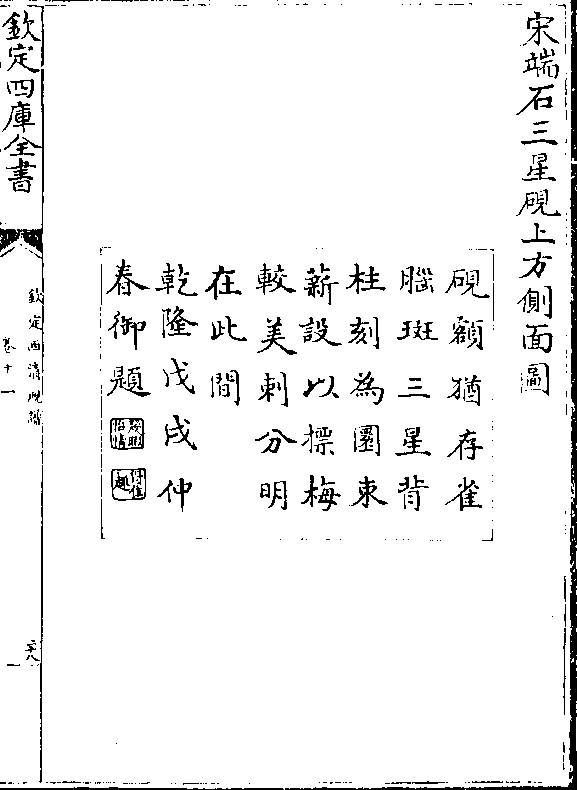 宋端石三星硯上方側面圖
硯額猶存雀
腦斑三星背
柱刻為圜束
薪設以摽梅
較美刺分明
在此間
乾隆戊戌仲
春御題
幾暇怡情
得佳趣
欽定四庫全書
欽定西清硯譜
卷十一
二十八